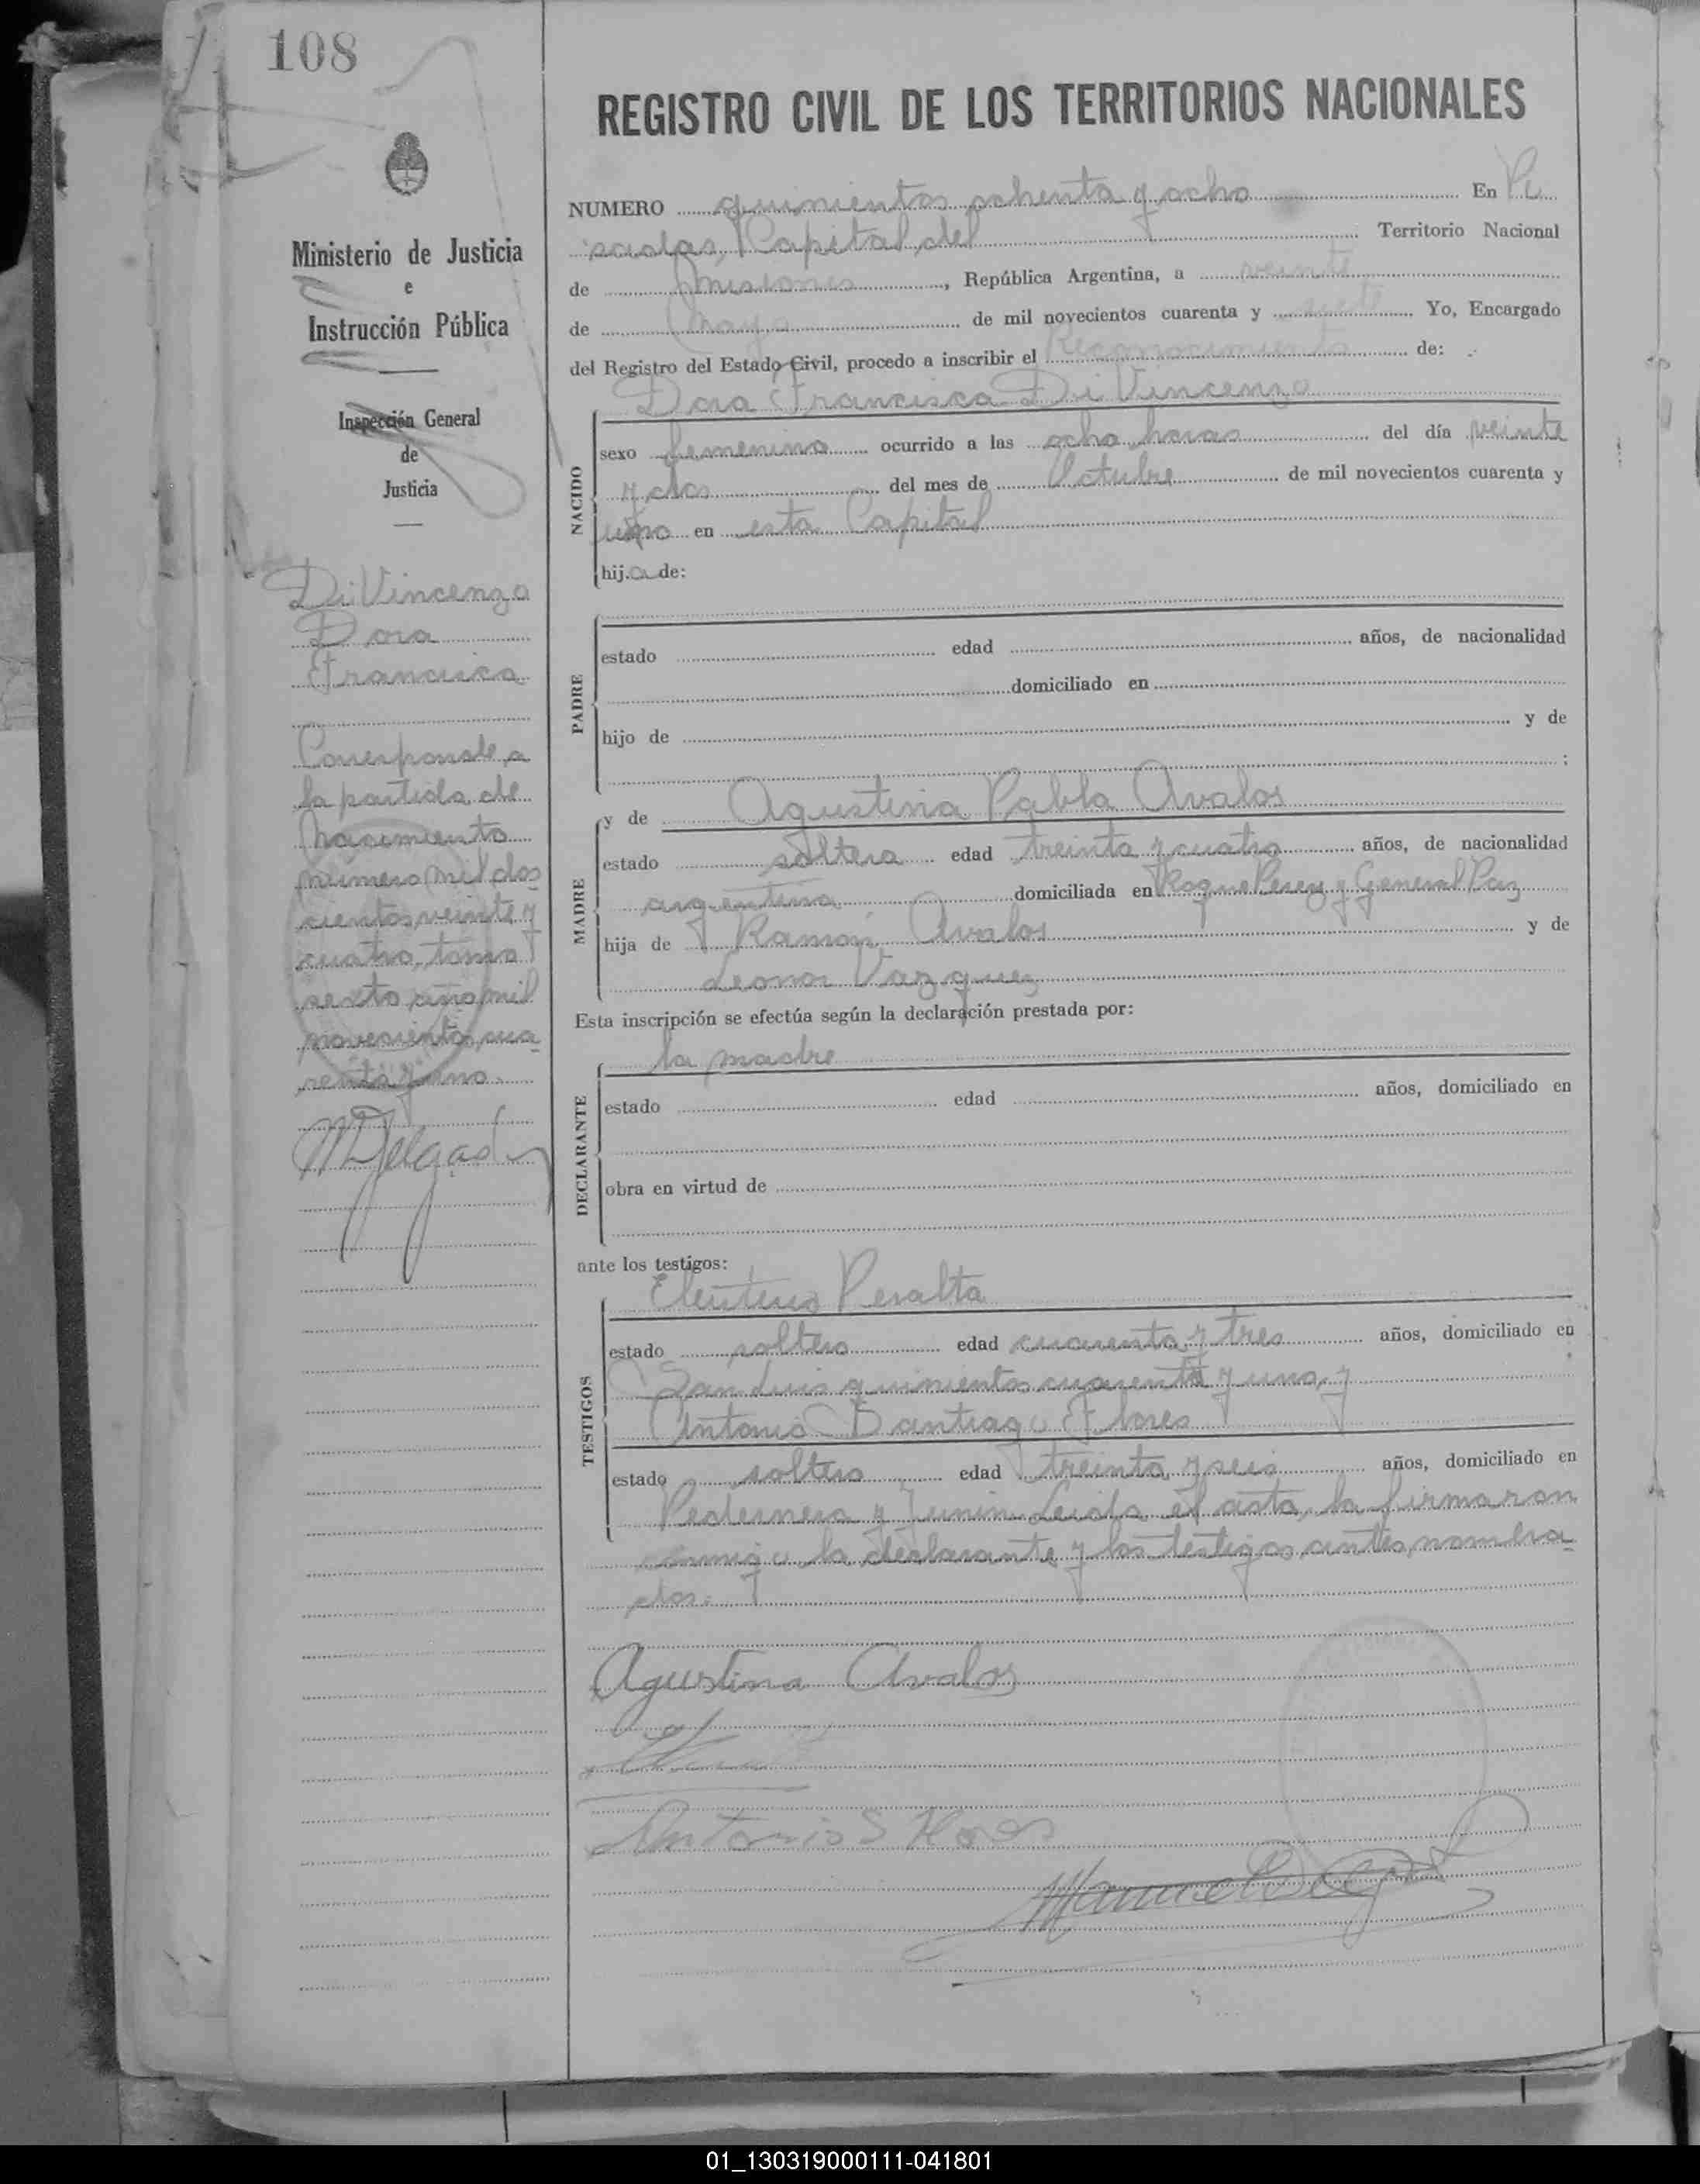 108
Ministerio de Justicia
e
Instrucción Pública
Inspección General
de
Justicia
Di Vincenzo
Dora
Francisca
Corresponde a
la partida de
Nacimiento
número mil dos
cientos veinte y
cuatro, tomo
sexto año mil
novecientos cua
renta y uno.
MDelgado
REGISTRO CIVIL DE LOS TERRITORIOS NACIONALES
NUMERO quinientos ochenta y ocho En Po
sadas, Capital del Territorio Nacional
de Misiones, República Argentina, a veinte
de Mayo de mil novecientos cuarenta y siete Yo, Encargado
del Registro del Estado Civil, procedo a inscribir el Reconocimiento de:
Dora Francisca Di Vincenzo
NACIDO
sexo femenino ocurrido a las ocho horas del día veinte
y dos del mes de Octubre de mil novecientos cuarenta y
uno en esta Capital
hija de:
PADRE
estado edad años, de nacionalidad
domiciliado en
hijo de y de
;
MADRE
y de Agustina Pabla Avalos
estado soltera edad treinta y cuatro años, de nacionalidad
argentina domiciliada en Roque Perez y General Paz
hija de Ramón Avalos y de
Leonor Vazquez
Esta inscripción se efectúa según la declaración prestada por:
la madre
DECLARANTE
estado edad años, domiciliado en
obra en virtud de
ante los testigos:
Eleuterio Peralta
TESTIGOS
estado soltero edad cuarenta y tres años, domiciliado en
San Luis quinientos cuarenta y uno, y
Antonio Santiago Flores
estado soltero edad treinta y seis años, domiciliado en
Pedernera y Junin. Leida el acta, la firmaron
conmigo la declarante y los testigos antes nombra
dos.
Agustina Avalos
Antonio S Flores
Manuel Delgado
01_130319000111-041801